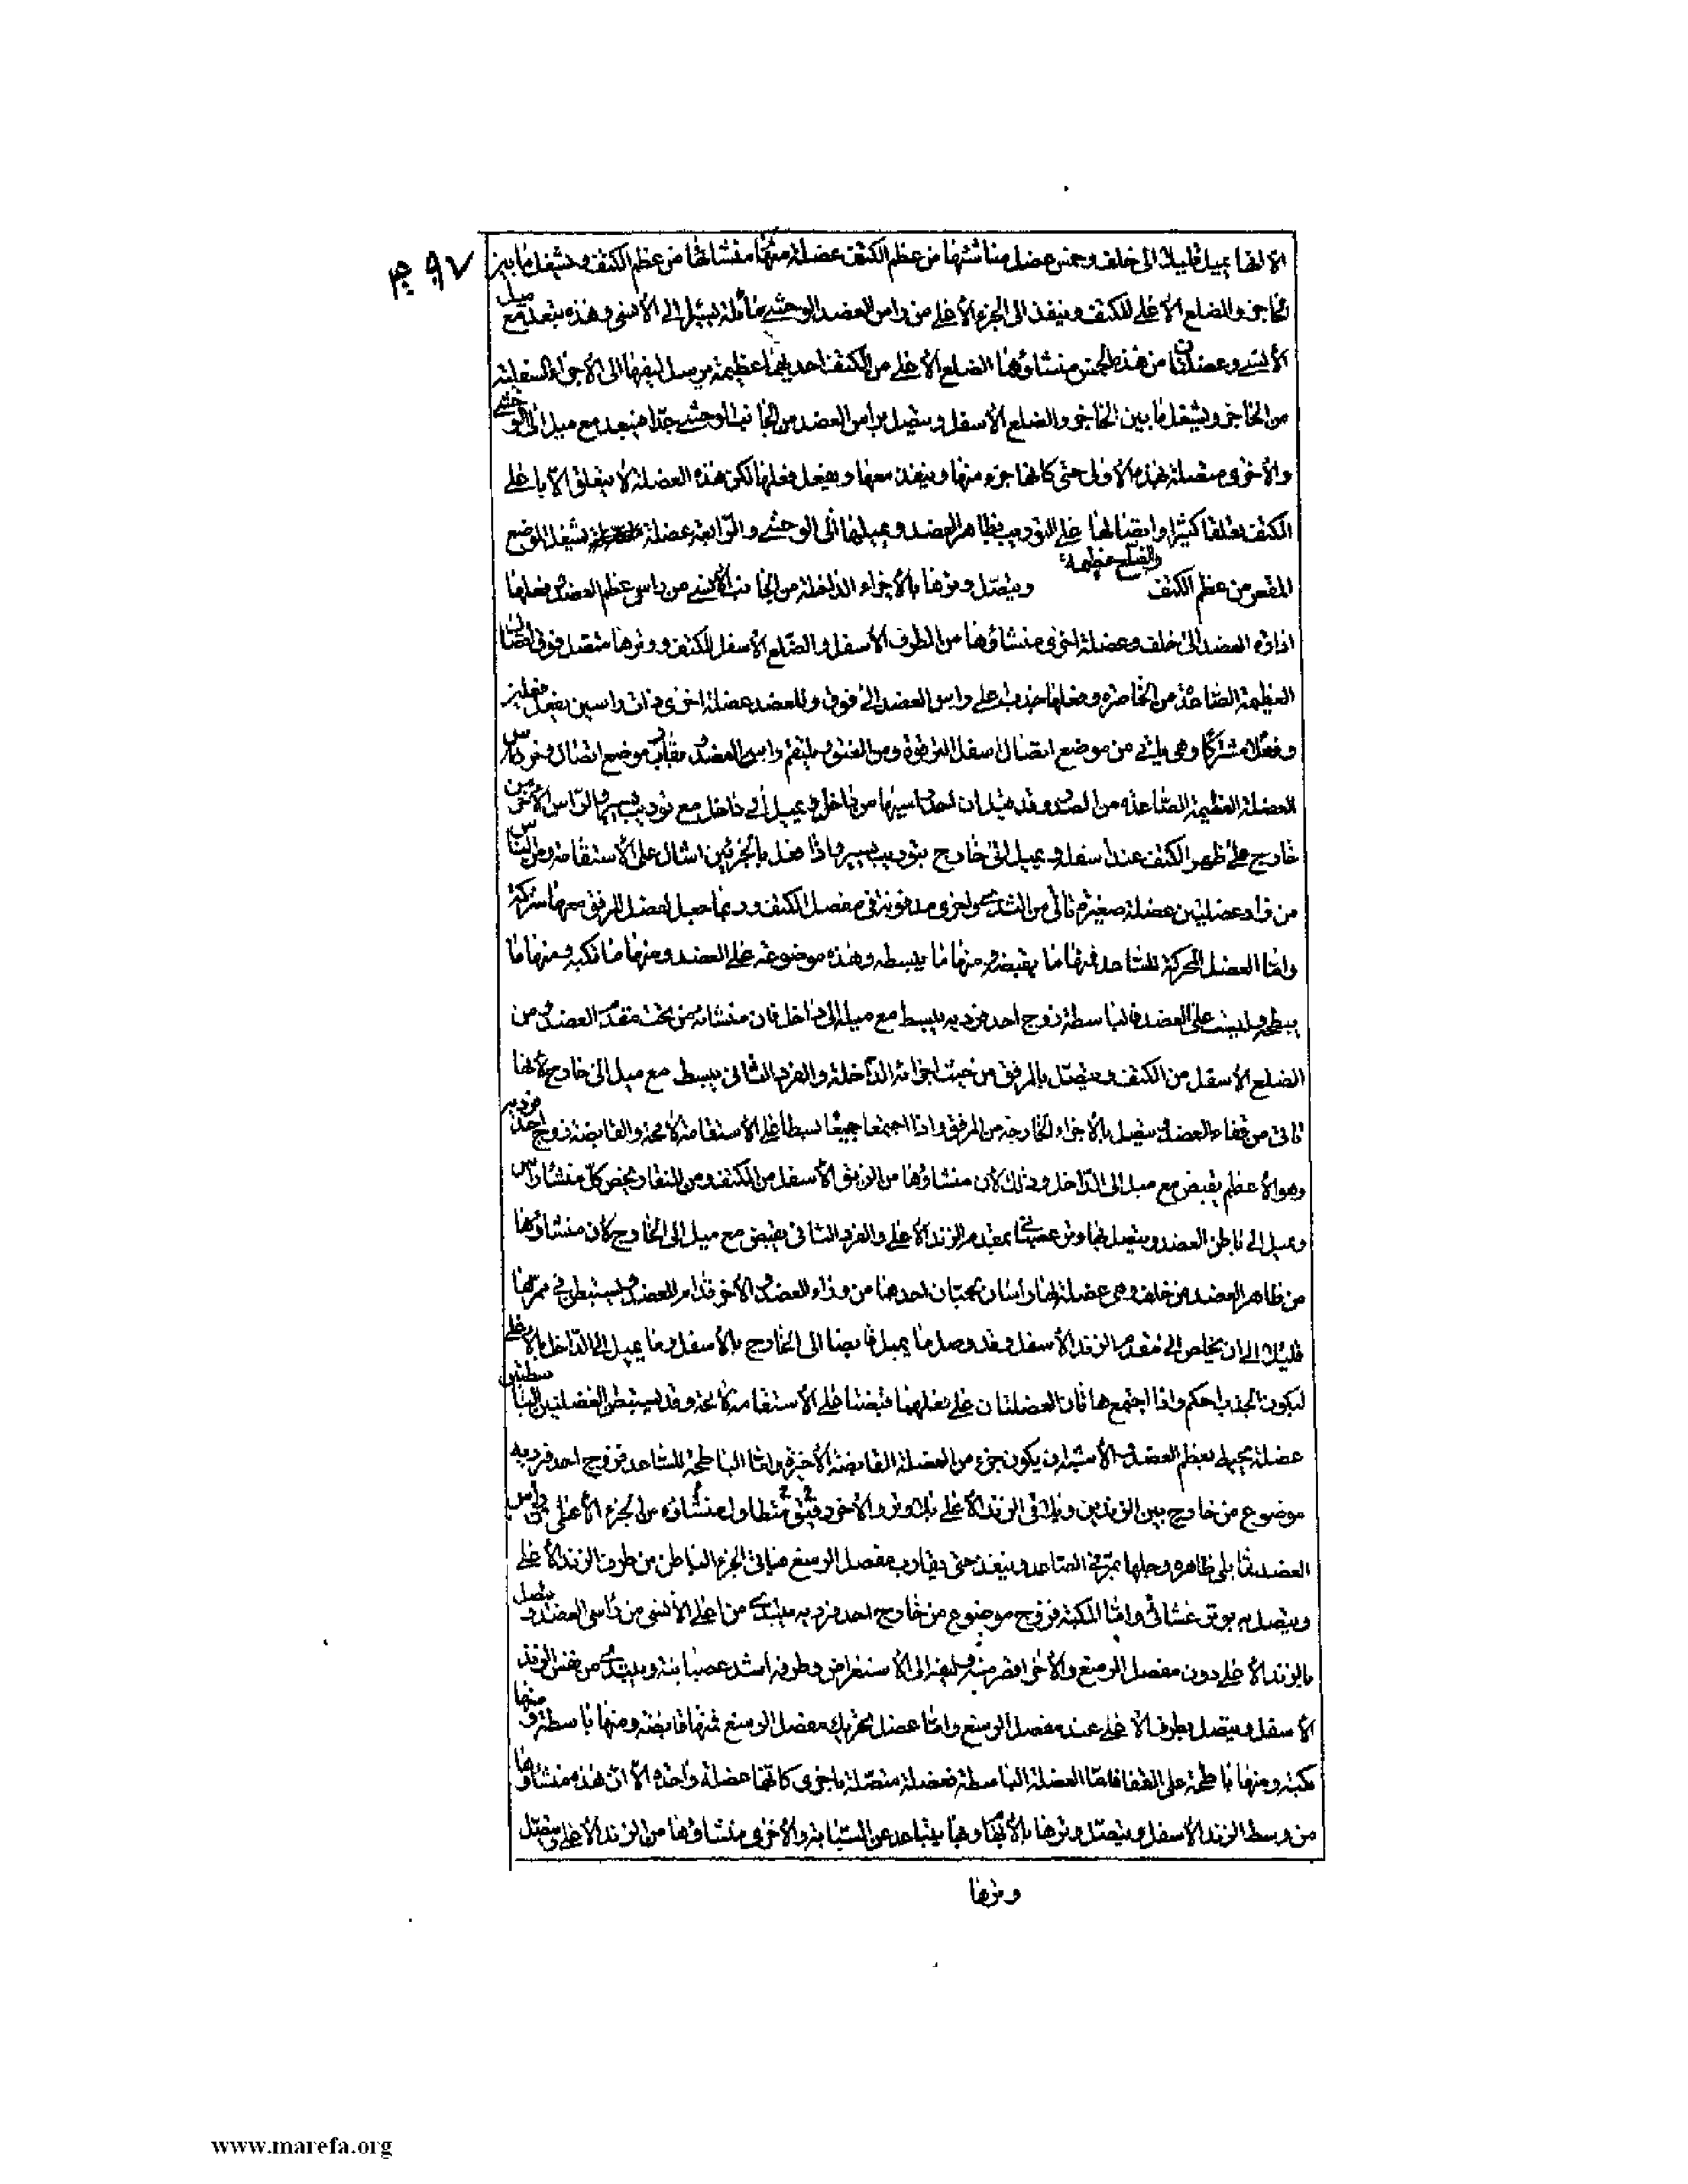 الا انها يميل قليلا الى خلف وخمس عضل منشأها من عظم الكتف عضلة منها منشأها من عظم الكتف وتشغل ما بين
الحاجز والضلع الأعلى للكتف وينفذ الى الجزء الأعلى من رأس العضد الوحشي مائلة يسيرا الى الأنسي وهذه تبعد مع ميل
الأنسي وعضلتان من هذه الخمس منشأوهما الضلع الأعلى من الكتف احديهما عظيمة يرسل ليفها الى الأجزاء السفلية
من الحاجز ويشغل ما بين الحاجز والضلع الأسفل ويتصل برأس العضد من الجانب الوحشي جدا فتبعد مع ميل الى الوحشي
والأخرى متصلة بهذه الأولى حتى كانها جزء منها وينفذ معها ويفعل فعلها لكن هذه العضلة لا يتعلق الا باعلى
الكتف تعلقا كثيرا واتصالها على التوريب بظاهر العضد ويميلها الى الوحشي والرابعة عضلة تشغل الموضع
المقعر من عظم الكتف والضلع عظيمة ويتصل وترها بالأجزاء الداخلة من الجانب الأنسي من رأس عظم العضد وفعلها
ادارة العضد الى خلف وعضلة اخرى منشاؤها من الطرف الأسفل والضلع الأسفل للكتف ووترها متصل فوق اتصال
العظيمة الصاعدة من الخاصرة وفعلها جذب اعلى رأس العضد الى فوق وللعضد عضلة اخرى ذات رأسين يفعل فعلين
وفعلا مشتركا وهي يأتي من موضع اتصال اسفل الترقوة ومن العنق يلتقم رأس العضد يقارب موضع اتصال وتر
العضلة العظيمة الصاعدة من الصدر وقد قيل ان احد رأسيها من داخل ويميل الى داخل مع توريب يسير والرأس الآخر من
خارج على ظهر الكتف عند اسفله ويميل الى خارج بتوريب يسير واذا فعل بالجزئين اشال على الأستقامة ومن الناس
من زاد عضلتين عضلة صغيرة تأتي من الثدي واخرى مدفونة في مفصل الكتف وربما جعل لعضل المرفق معها شركة
واما العضل المحركة للساعد فمنها ما يقبضه ومنها ما يبسطه وهذه موضوعة على العضد ومنها ما تكبه ومنها ما
يبطحه وليست على العضد فالباسطة زوج احد فرديه يبسط مع ميله الى داخل فان منشأه من تحت مقدم العضد ومن
الضلع الأسفل من الكتف ويتصل بالمرفق من حيث اجزائه الداخلة والفرد الثاني يبسط مع ميل الى خارج لأنها
تاتي من قفاء العضد ويتصل بالأجزاء الخارجة من المرفق واذا اجتمعا جميعا بسطا على الأستقامة لا محة والقابضة زوج احد فرديه
وهو الأعظم يقبض مع ميل الى الداخل وذلك لأن منشاؤها من الزيق الأسفل من الكتف ومن المنقار يخص كل منشأ رأس
ويميل الى باطن العضد ويتصل بها وتر عصبي بمقدم الزند الأعلى والفرد الثاني يقبض مع ميل الى الخارج لان منشاؤها
من ظاهر العضد من خلف وهي عضلة لها رأسان لحميان احدهما من وراء العضد والأخر قدام العضد ويستبطن في ممرها
قليلا الى ان يخلص الى مقدم الزند الأسفل وقد وصل ما يميل قابضا الى الخارج بالأسفل وما يميل الى الداخل بالأعلى
ليكون الجذب احكم واذا اجتمع هاتان العضلتان على فعلهما قبضتا على الأستقامة لا محة وقد يستبطن العضلتين الباسطتين
عضلة يحيط بعظم العضد والأشبه ان يكون جزء من العضلة القابضة الأخيرة واما الباطحة للساعد فزوج احد فرديه
موضوع من خارج بين الزندين ويلاقى الزند الأعلى بلا وتر والأخر رقيق متطاول منشاؤه من الجزء الأعلى من رأس
العضد مما يلي ظاهره وجلها يمر في الساعد وينفذ حتى يقارب مفصل الرسغ فيأتي الجزء الباطن من طرف الزند الأعلى
ويتصل به بوتر غشائي واما المكبة فزوج موضوع من خارج احد فرديه يبتدي من اعلى الأنسي من رأس العضد ويتصل
بالزند الأعلى دون مفصل الرسغ والأخر اقصر منه وليفه الى الأستعراض وطرفه اشد عصبانية ويبتدي من نفس الزند
الأسفل ويتصل بطرف الأعلى عند مفصل الرسغ واما عضل تحريك مفصل الرسغ فمنها قابضة ومنها باسطة ومنها
مكبة ومنها باطحة على القفا فاما العضلة الباسطة فعضلة متصلة باخرى كانها عضلة واحدة الا ان هذه منشاؤها
من وسط الزند الأسفل ويتصل وترها بالأبهام وبها يتباعد عن السبابة والأخرى منشاؤها من الزند الأعلى ويتصل
وترها
www.marefa.org